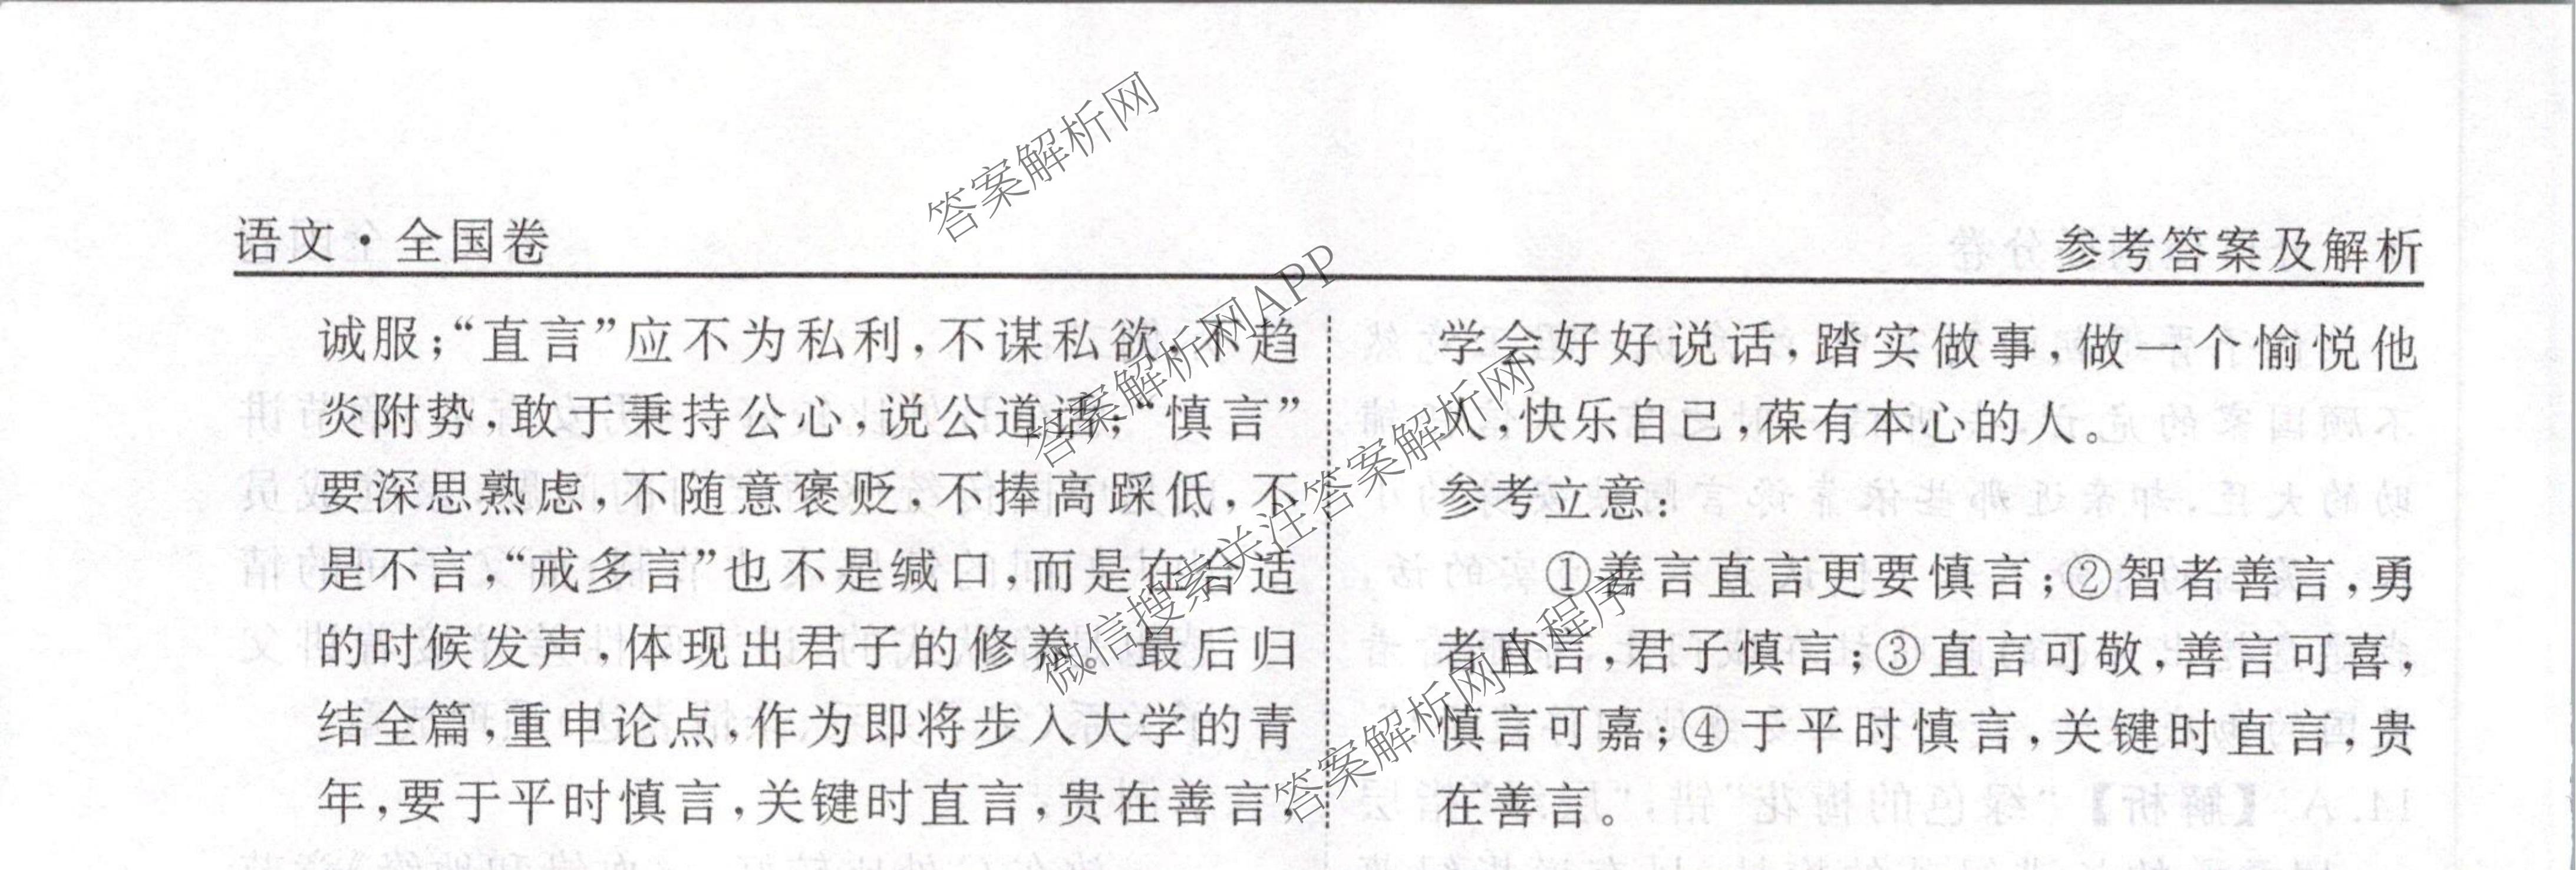 语文·全国卷
参考答案及解析
诚服；“直言”应不为私利，不谋私欲，不趋
炎附势，敢于秉持公心，说公道话；“慎言”
要深思熟虑，不随意褒贬，不捧高踩低，不
是不言，“戒多言”也不是缄口，而是在合适
的时候发声，体现出君子的修养。最后归
结全篇，重申论点，作为即将步入大学的青
年，要于平时慎言，关键时直言，贵在善言，
学会好好说话，踏实做事，做一个愉悦他
人，快乐自己，葆有本心的人。
参考立意：
①善言直言更要慎言；②智者善言，勇
者直言，君子慎言；③直言可敬，善言可喜，
慎言可嘉；④于平时慎言，关键时直言，贵
在善言。
答案解析网
答案解析网APP
微信搜索关注答案解析网
答案解析网小程序